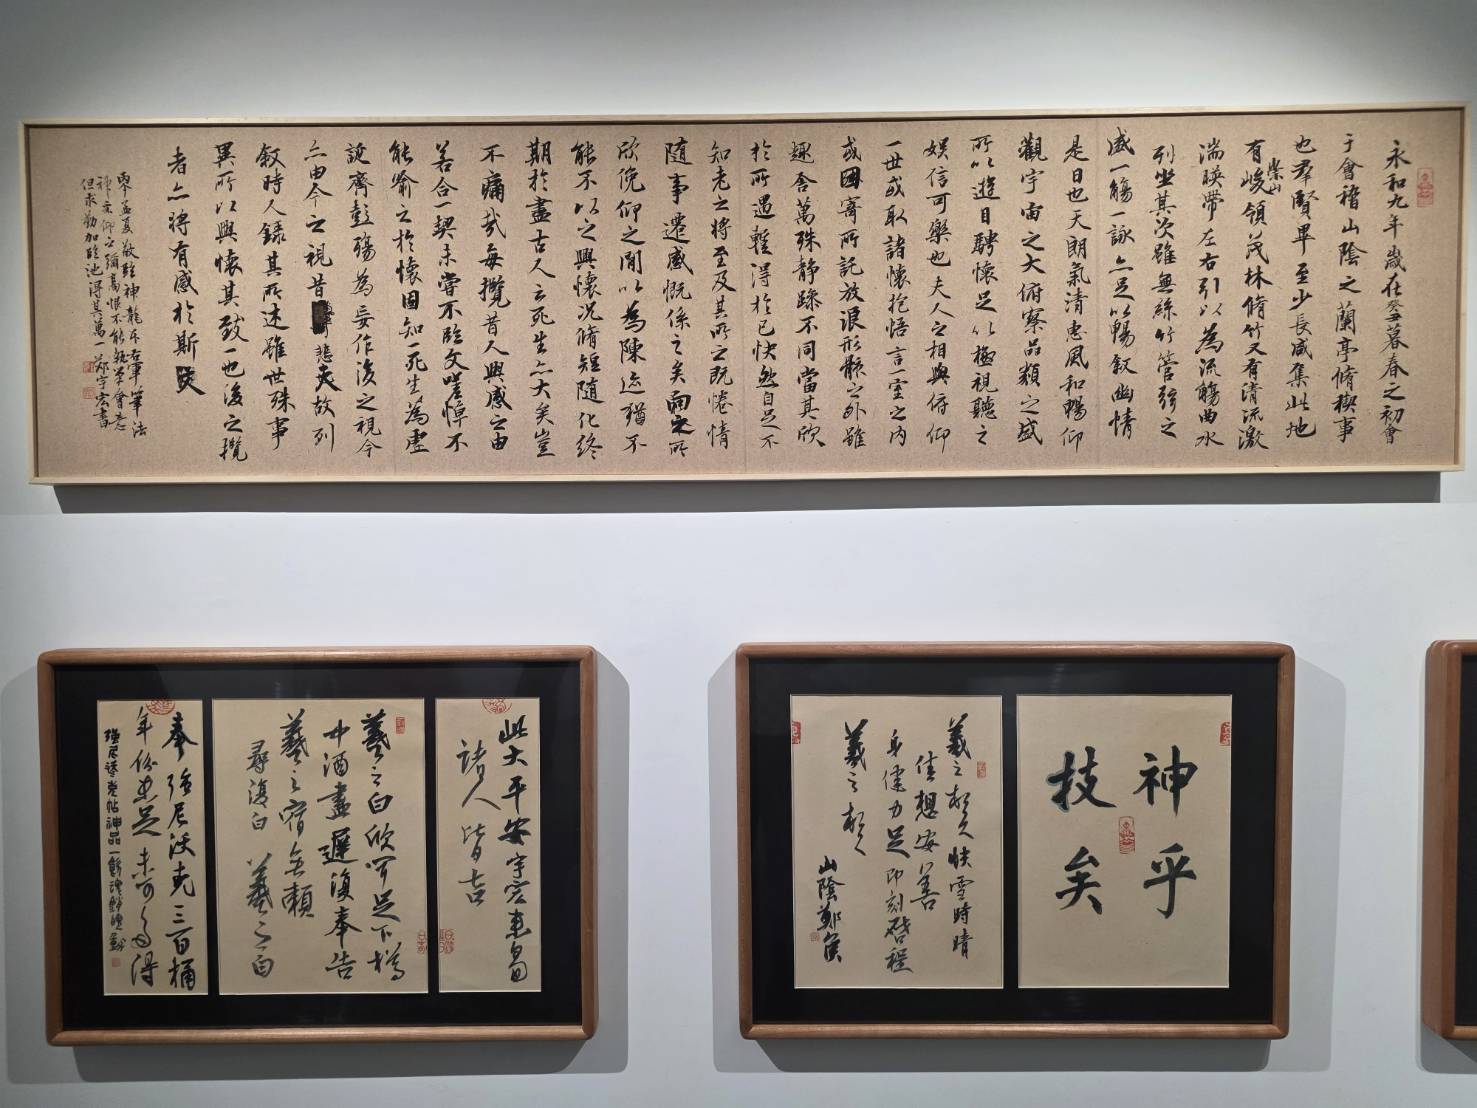 永和九年歲在癸丑暮春之初會
于會稽山陰之蘭亭脩稧事
也羣賢畢至少長咸集此地
有峻領茂林脩竹又有清流激
崇山
湍暎帶左右引以為流觴曲水
列坐其次雖無絲竹管弦之
盛一觴一詠亦足以暢敘幽情
是日也天朗氣清惠風和暢仰
觀宇宙之大俯察品類之盛
所以遊目騁懷足以極視聽之
娛信可樂也夫人之相與俯仰
一世或取諸懷抱悟言一室之內
或因寄所託放浪形骸之外雖
趣舍萬殊靜躁不同當其欣
於所遇暫得於己快然自足不
知老之將至及其所之既惓情
隨事遷感慨係之矣向之所
欣俛仰之閒以為陳迹猶不
能不以之興懷況脩短隨化終
期於盡古人云死生亦大矣豈
不痛哉每攬昔人興感之由
若合一契未嘗不臨文嗟悼不
能喻之於懷固知一死生為虛
誕齊彭殤為妄作後之視今
亦由今之視昔悲夫故列
敘時人錄其所述雖世殊事
異所以興懷其致一也後之攬
者亦將有感於斯文
孟夏敬臨神龍本右軍筆法
但求勤加臨池得其萬一鄭宇宏書
此大平安宇宏惠昌
諸人皆吉
羲之白欣聞足下樽
中酒盡遲復奉告
羲之宿無賴
尋復白 羲之白
奉強尼沃克三百桶
年份惠足未可多得
羲之頓首快雪時晴
佳想安善
身儘力足即刻啓程
羲之頓首
山陰鄭侯
神乎
技矣